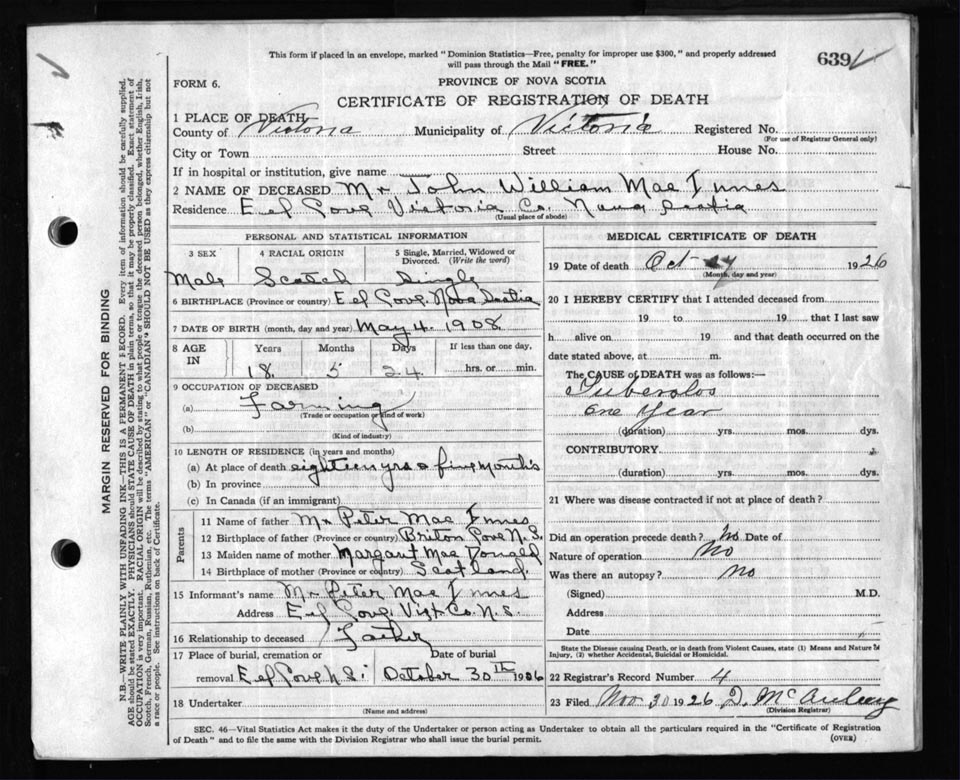 This form if placed in an envelope, marked "Dominion Statistics—Free, penalty for improper use $300," and properly addressed
will pass through the Mail "FREE."
639
FORM 6.
PROVINCE OF NOVA SCOTIA
CERTIFICATE OF REGISTRATION OF DEATH
1 PLACE OF DEATH
County of Victoria Municipality of Victoria Registered No.
(For use of Registrar General only)
City or Town Street House No.
If in hospital or institution, give name
2 NAME OF DECEASED Mr John William Mac Innes
Residence Eel Cove Victoria Co. Nova Scotia
(Usual place of abode)
PERSONAL AND STATISTICAL INFORMATION
3 SEX 4 RACIAL ORIGIN 5 Single, Married, Widowed or Divorced. (Write the word)
Male Scotch Single
6 BIRTHPLACE (Province or country) Eel Cove. Nova Scotia
7 DATE OF BIRTH (month, day and year) May 4. 1908
8 AGE IN Years Months Days If less than one day,
18 5 24 hrs. or min.
9 OCCUPATION OF DECEASED
(a) Farming
(Trade or occupation or kind of work)
(b)
(Kind of industry)
10 LENGTH OF RESIDENCE (in years and months)
(a) At place of death eighteen yrs & five months
(b) In province
(c) In Canada (if an immigrant)
Parents
11 Name of father Mr Peter Mac Innes
12 Birthplace of father (Province or country) Briton Cove N.S.
13 Maiden name of mother Margaret Mac Donald
14 Birthplace of mother (Province or country) Scotland.
15 Informant's name Mr Peter Mac Innes
Address Eel Cove. Vict. Co. N.S.
16 Relationship to deceased Father
17 Place of burial, cremation or removal Date of burial
Eel Cove N.S. October 30 19
18 Undertaker
(Name and address)
MEDICAL CERTIFICATE OF DEATH
19 Date of death Oct 1926
(Month, day and year)
20 I HEREBY CERTIFY that I attended deceased from
19 to 19 that I last saw
h alive on 19 and that death occurred on the
date stated above, at m.
The CAUSE of DEATH was as follows:—
Tuberolos
one year
(duration) yrs. mos. dys.
CONTRIBUTORY
(duration) yrs. mos. dys.
21 Where was disease contracted if not at place of death?
Did an operation precede death? No Date of
Nature of operation No
Was there an autopsy? no
(Signed) M.D.
Address
Date
State the Disease causing Death, or in death from Violent Causes, state (1) Means and Nature of
Injury, (2) whether Accidental, Suicidal or Homicidal.
22 Registrar's Record Number 4
23 Filed Nov 30 1926
(Division Registrar)
SEC. 46—Vital Statistics Act makes it the duty of the Undertaker or person acting as Undertaker to obtain all the particulars required in the "Certificate of Registration
of Death" and to file the same with the Division Registrar who shall issue the burial permit.
(OVER)
MARGIN RESERVED FOR BINDING
N.B.—WRITE PLAINLY WITH UNFADING INK—THIS IS A PERMANENT RECORD. Every item of information should be carefully supplied.
AGE should be stated EXACTLY. PHYSICIANS should STATE CAUSE OF DEATH in plain terms, so that it may be properly classified. Exact statement of
OCCUPATION is very important. RACIAL ORIGIN will be described by stating to what people or tongue the deceased person belonged, whether English, Irish,
Scotch, French, German, Russian, Ruthenian, etc. The terms "AMERICAN" or "CANADIAN" SHOULD NOT BE USED as they express citizenship but not
a race or people. See instructions on back of Certificate.